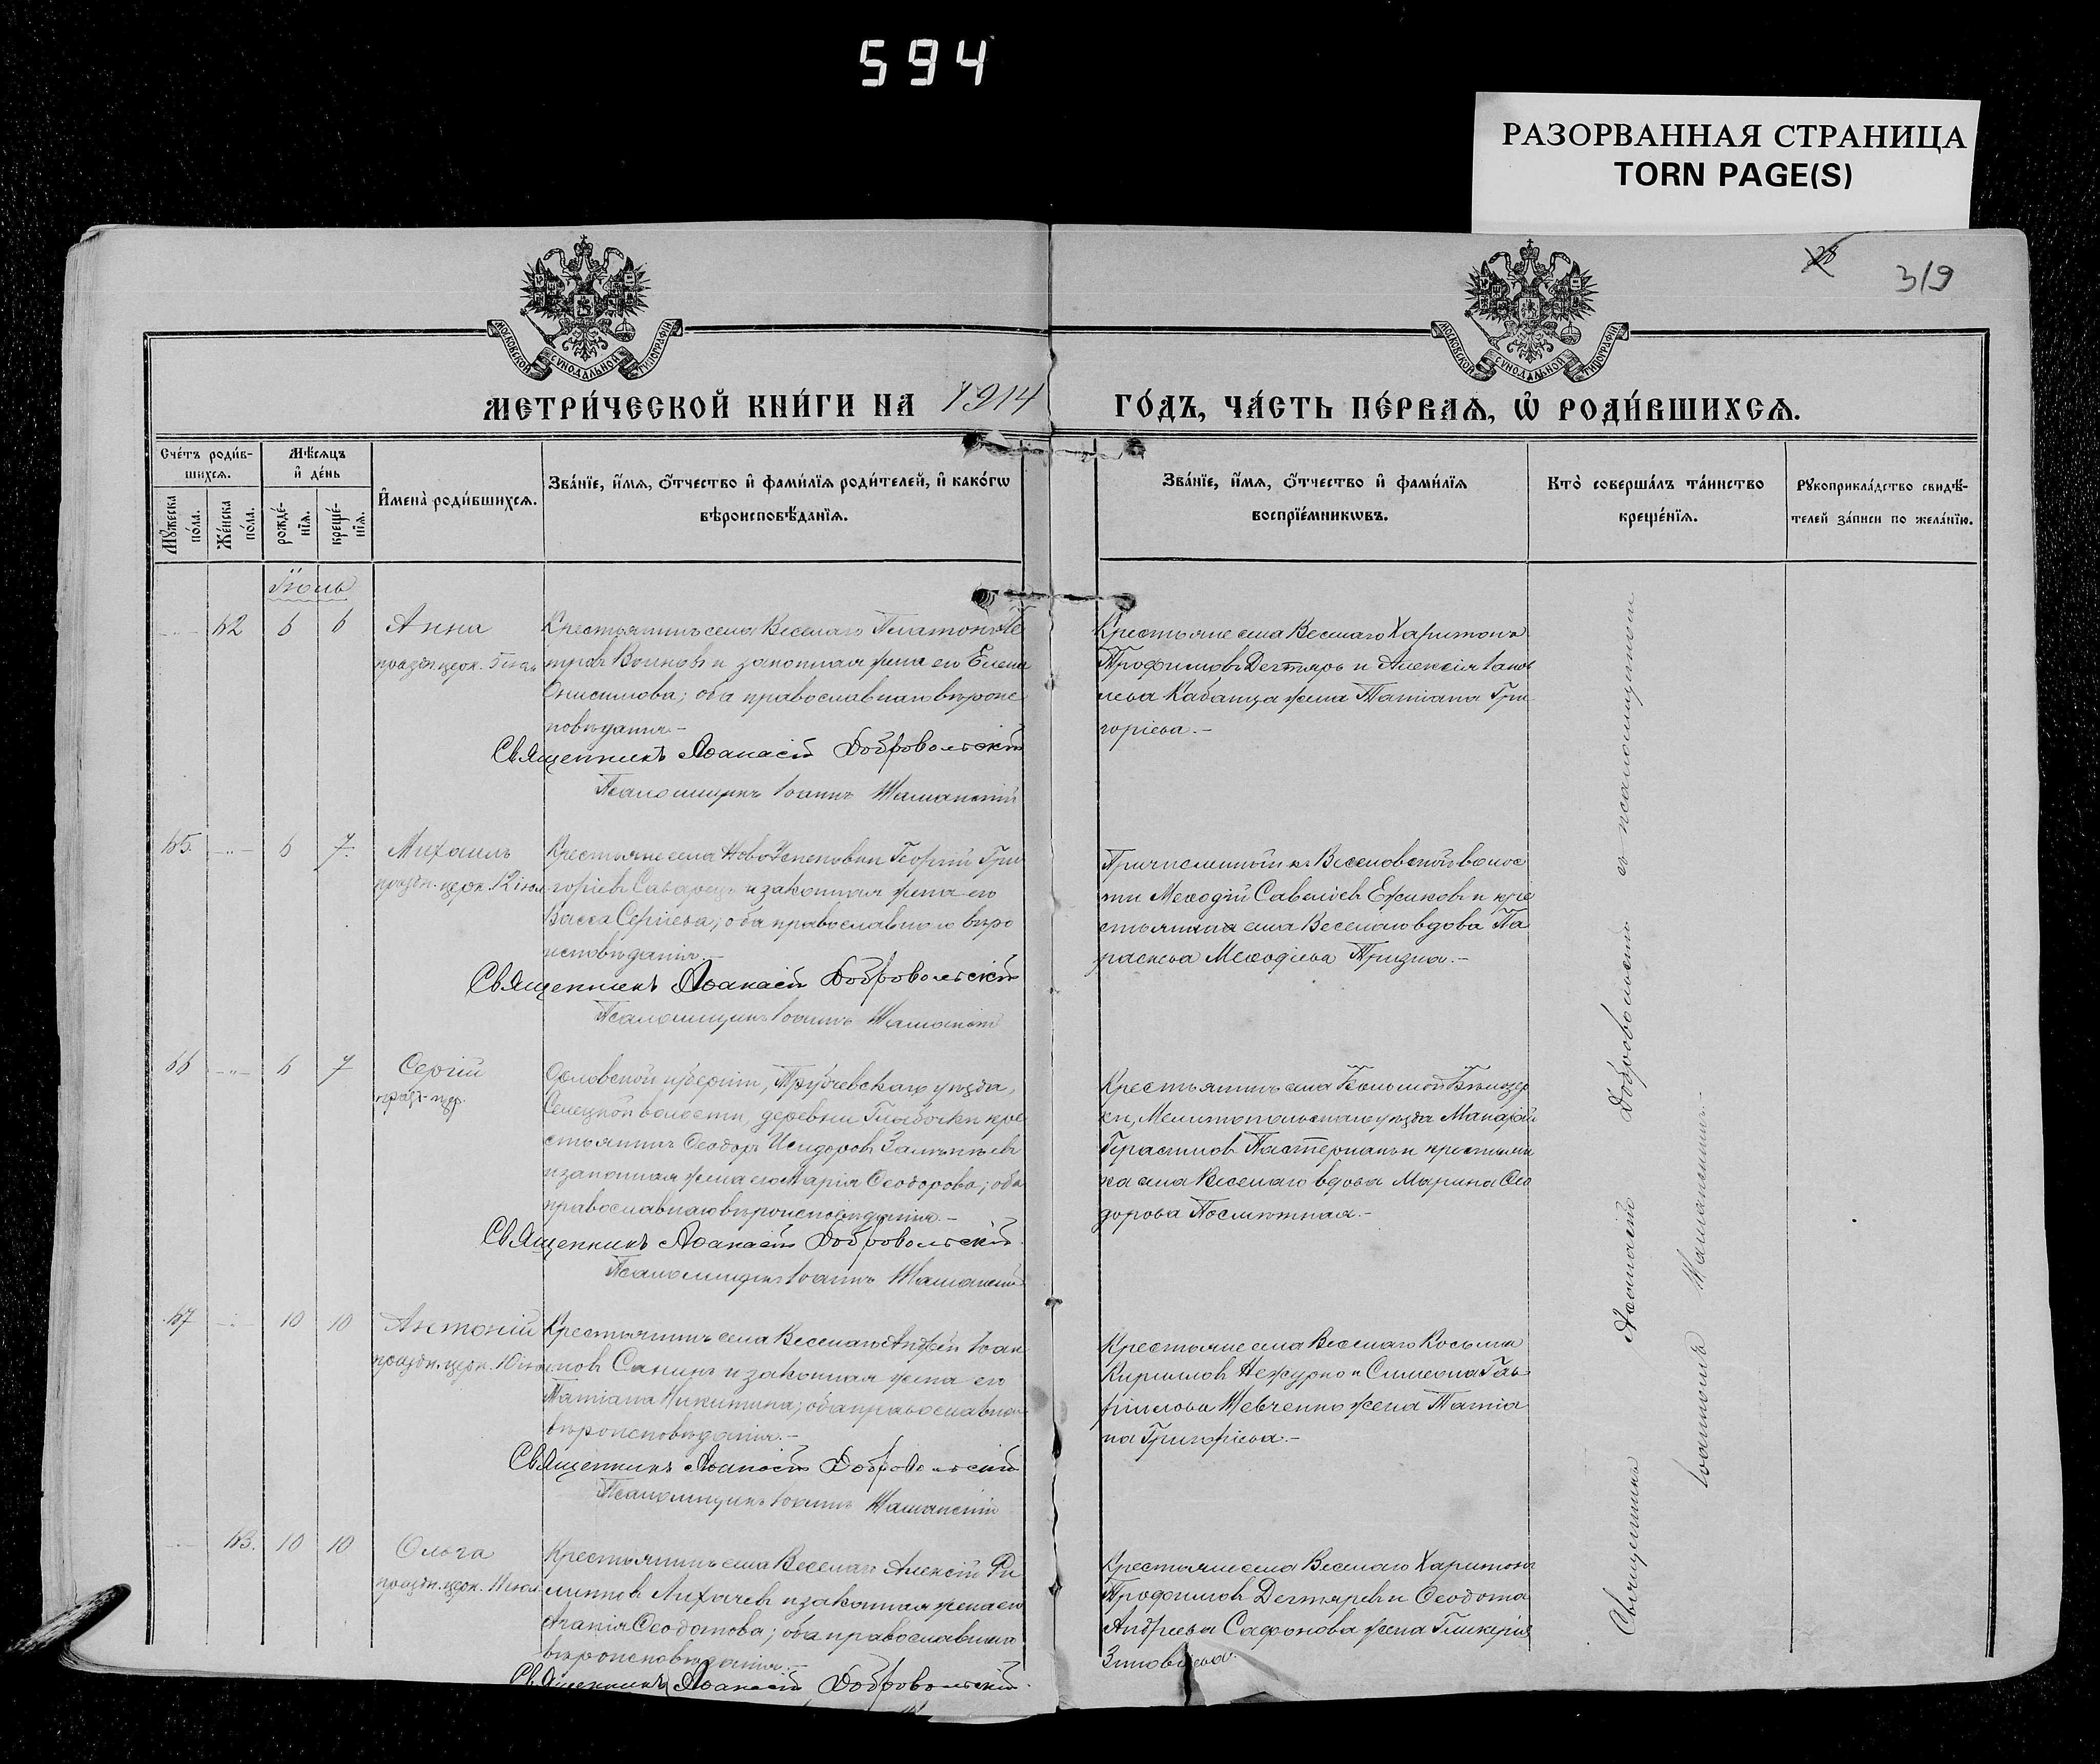 594
РАЗОРВАННАЯ СТРАНИЦА
TORN PAGE(S)
319
МОСКОВСКОЙ СѴНОДАЛЬНОЙ ТИПОГРАФІИ
МОСКОВСКОЙ СѴНОДАЛЬНОЙ ТИПОГРАФІИ
МЕТРИ́ЧЕСКОЙ КНИ́ГИ НА 1914 ГО́ДЪ, ЧА́СТЬ ПЕ́РВАѦ, Ѡ҆ РОДИ́ВШИХСѦ.
Счéтъ роди́в-
шихсѧ.
Мꙋ́жеска по́ла.
Же́нска по́ла.
Мѣ́сѧцъ
и҆ де́нь
рожде́-
нїѧ.
креще́-
нїѧ.
И҆мена̀ роди́вшихсѧ.
Зва́нїе, и҆́мѧ, ѻ҆́тчество и҆ фами́лїѧ роди́телей, и҆ како́гѡ
вѣроисповѣ́данїѧ.
Зва́нїе, и҆́мѧ, ѻ҆́тчество и҆ фами́лїѧ
воспрїе́мникѡвъ.
Кто̀ соверша́лъ та́инство
креще́нїѧ.
Рꙋкоприкла́дство свидѣ́-
телей за́писи по жела́нїю.
Іюль
62 6 6 Анна
Крестьянинъ села Веселаго Платонъ Пе
тровъ Воиновъ и законная жена его Елена
Онисимова; оба православнаго вѣроис
повѣданія.-
Священникъ Аѳанасій Добровольскій
Псаломщикъ Іоаннъ Шаманскій
Крестьяне села Веселаго Харитонъ
Трофимовъ Дегтярь и Алексія Іаков
лева Кабанца жена Татіана Гри
горіева.-
65. 6 7. Михаилъ
праздн. церк. 12 іюл
Крестьяне села Ново Успеновки Георгій Гри
горіевъ Саварецъ и законная жена его
Васса Сергіева; оба православнаго вѣро
исповѣданія.-
Священникъ Аѳанасій Добровольскій
Псаломщикъ Іоаннъ Шаманскій
Причисленный къ Веселовской волос
ти Меѳодій Савеліевъ Ежиковъ и кре
стьянина села Веселаго вдова Па
раскева Меѳодіева Тризна.-
66 6 7 Сергій
Орловской губерніи, Трубчевскаго уѣзда,
Селецкой волости, деревни Глыбочки кре
стьянинъ Ѳеодоръ Исидоровъ
и законная жена его Марія Ѳеодорова; оба
православнаго вѣроисповѣданія.-
Священникъ Аѳанасій Добровольскій
Псаломщикъ Іоаннъ Шаманскій
Крестьянинъ села Большой Бѣлозер
ки, Мелитопольскаго уѣзда Макарій
Герасимовъ Пастернакъ и крестьян
ка села Веселаго вдова Марина Ѳео
дорова
67 10 10 Антоній
праздн. церк. 10 іюл
Крестьянинъ села Веселаго Андрей Іоан
новъ Санинъ и законная жена его
Татіана Никитина; оба православнаго
вѣроисповѣданія.-
Священникъ Аѳанасій Добровольскій
Псаломщикъ Іоаннъ Шаманскій
Крестьяне села Веселаго Косьма
Кирилловъ Нежурко и Симеона Гав
ріилова Шевченко жена Татіа
на Григоріева.-
63. 10 10 Ольга
праздн. церк. 11 іюл
Крестьянинъ села Веселаго Алексій Фи
липповъ Лихачевъ и законная жена его
Агапія Ѳеодотова; оба православнаго
вѣроисповѣданія.-
Священникъ Аѳанасій Добровольскій
Крестьяне села Веселаго Харитонъ
Трофимовъ Дегтяревъ и Ѳеодота
Андреева Сафонова жена Гликерія
Зиновіева.
Священникъ Аѳанасій Добровольскій съ псаломщикомъ
Іоанномъ Шаманскимъ.-